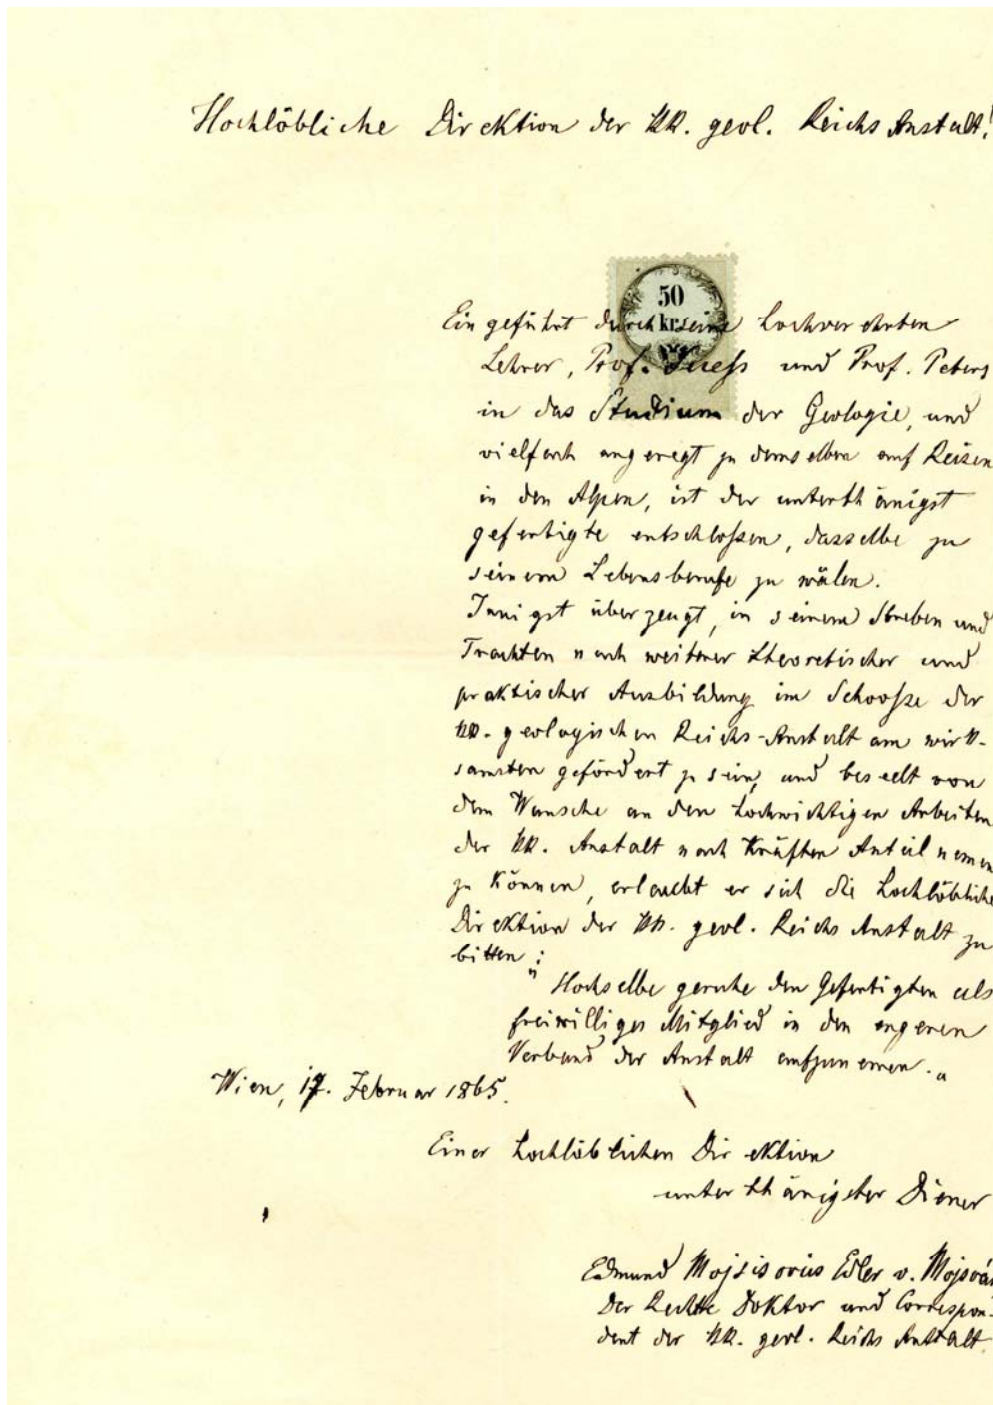 Hochlöbliche Direktion der kk. geol. Reichs Anstalt!
50
kr.
Eingeführt durch seine hochverehrten
Lehrer, Prof. Suess und Prof. Peters
in das Studium der Geologie, und
vielfach angeregt zu demselben auf Reisen
in den Alpen, ist der unterthänigst
gefertigte entschlossen, dasselbe zu
seinem Lebensberufe zu wälen.
Innigst überzeugt, in seinem Streben und
Trachten nach weiterer theoretischer und
praktischer Ausbildung im Schoosze der
kk. geologischen Reichs-Anstalt am wirk-
samsten gefördert zu sein, und beseelt von
dem Wunsche an den hochwichtigen Arbeiten
der kk. Anstalt nach Kräften Anteil nemen
zu können, erlaubt er sich die hochlöbliche
Direktion der kk. geol. Reichs Anstalt zu
bitten:
„Hochselbe geruhe den Gefertigten als
freiwilliges Mitglied in den engeren
Verband der Anstalt aufzunemen.“
Wien, 17. Februar 1865.
Einer hochlöblichen Direktion
unterthänigster Diener
Edmund Mojsisovics Edler v. Mojsvár
Der Rechte Doktor und Correspon-
dent der kk. geol. Reichs Anstalt.